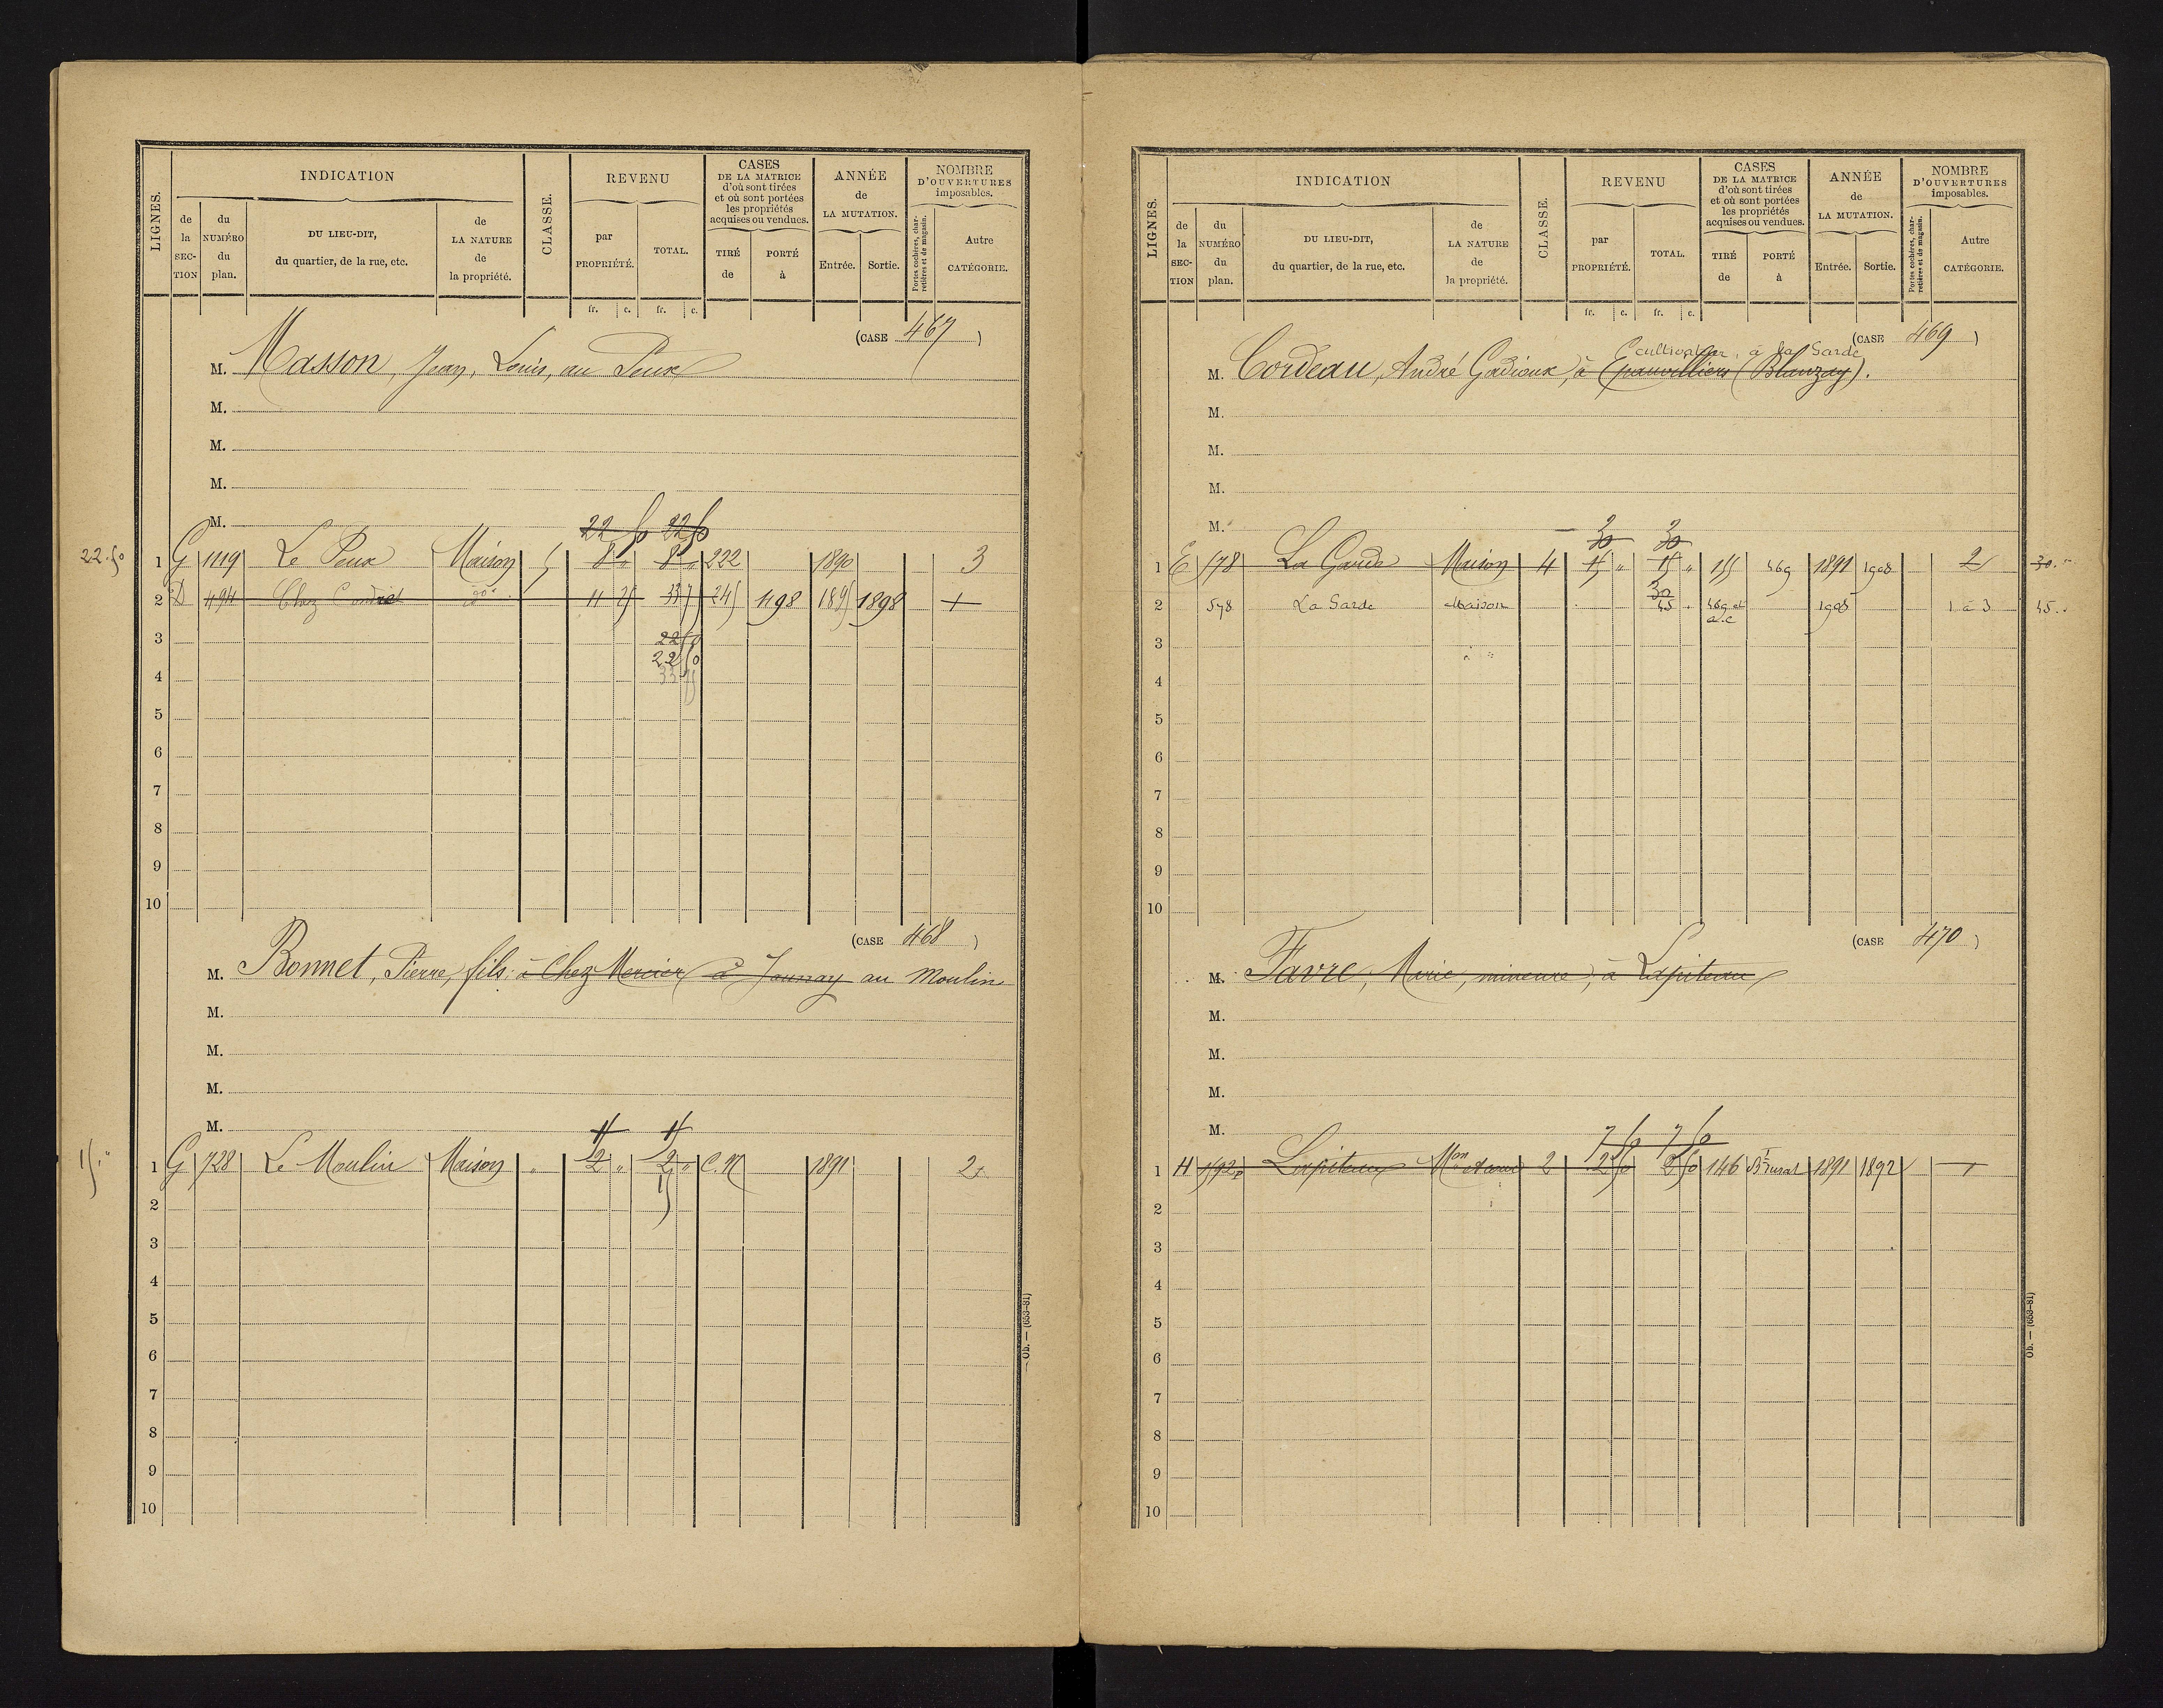 LIGNES.
INDICATION
de la SECTION
du NUMÉRO du plan.
DU LIEU-DIT, du quartier, de la rue, etc.
de LA NATURE de la propriété.
CLASSE.
REVENU
par PROPRIÉTÉ.
TOTAL.
fr. c. fr. c.
CASES DE LA MATRICE d'où sont tirées et où sont portées les propriétés acquises ou vendues.
TIRÉ de
PORTÉ à
ANNÉE de LA MUTATION.
Entrée. Sortie.
NOMBRE D'OUVERTURES imposables.
Portes cochères, charretières et de magasin.
Autre CATÉGORIE.
(CASE 467)
M. Masson, Jean, Louis, au Peux
M.
M.
M.
M.
22 50 22 50
22.50 1 G 1119 Le Peux Maison 5 8 " 8 " 222 1890 3
2 D 494 Chez do 11 25 33 75 245 498 1895 1898 1
3 22 50
22 50
4 33 75
5
6
7
8
9
10
(CASE 468)
M. Bonnet, Pierre, fils, à Chez Mercier à Jaunay au Moulin
M.
M.
M.
M.
15." 1 G 728 Le Moulin Maison " 2 " 2 " C.N 1891 2
15
2
3
4
5
6
7
8
9
10
Ob. — (653-81)
LIGNES.
INDICATION
de la SECTION
du NUMÉRO du plan.
DU LIEU-DIT, du quartier, de la rue, etc.
de LA NATURE de la propriété.
CLASSE.
REVENU
par PROPRIÉTÉ.
TOTAL.
fr. c. fr. c.
CASES DE LA MATRICE d'où sont tirées et où sont portées les propriétés acquises ou vendues.
TIRÉ de
PORTÉ à
ANNÉE de LA MUTATION.
Entrée. Sortie.
NOMBRE D'OUVERTURES imposables.
Portes cochères, charretières et de magasin.
Autre CATÉGORIE.
(CASE 469)
cultivateur, à la Garde
M. Cordeau, André Gadioux, à Epanvilliers (Blanzay).
M.
M.
M.
M.
30 30
1 E 578 La Garde Maison 4 15 " 15 " 155 469 1891 1908 2 30."
30
2 578 La Garde Maison 45 . 469 et a.c 1908 1 à 3 45..
3
4
5
6
7
8
9
10
(CASE 470)
M. Favre, Marie, mineure, à Lapiteau
M.
M.
M.
M.
7 50 7 50
1 H 1592p Lapiteau Mon 2 2 50 2 50 146 1891 1892 1
2
3
4
5
6
7
8
9
10
Ob. — (653-81)